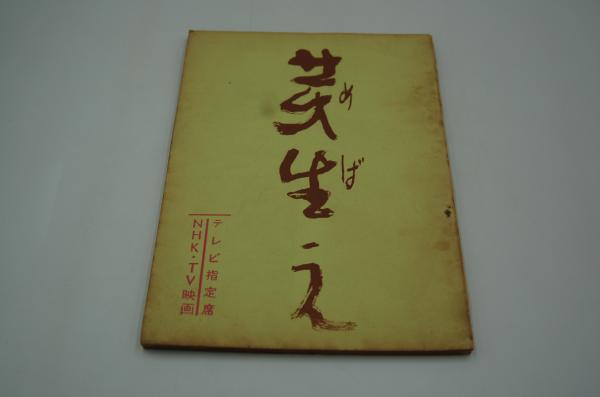 芽生え
めば
テレビ指定席
NHK・TV映画